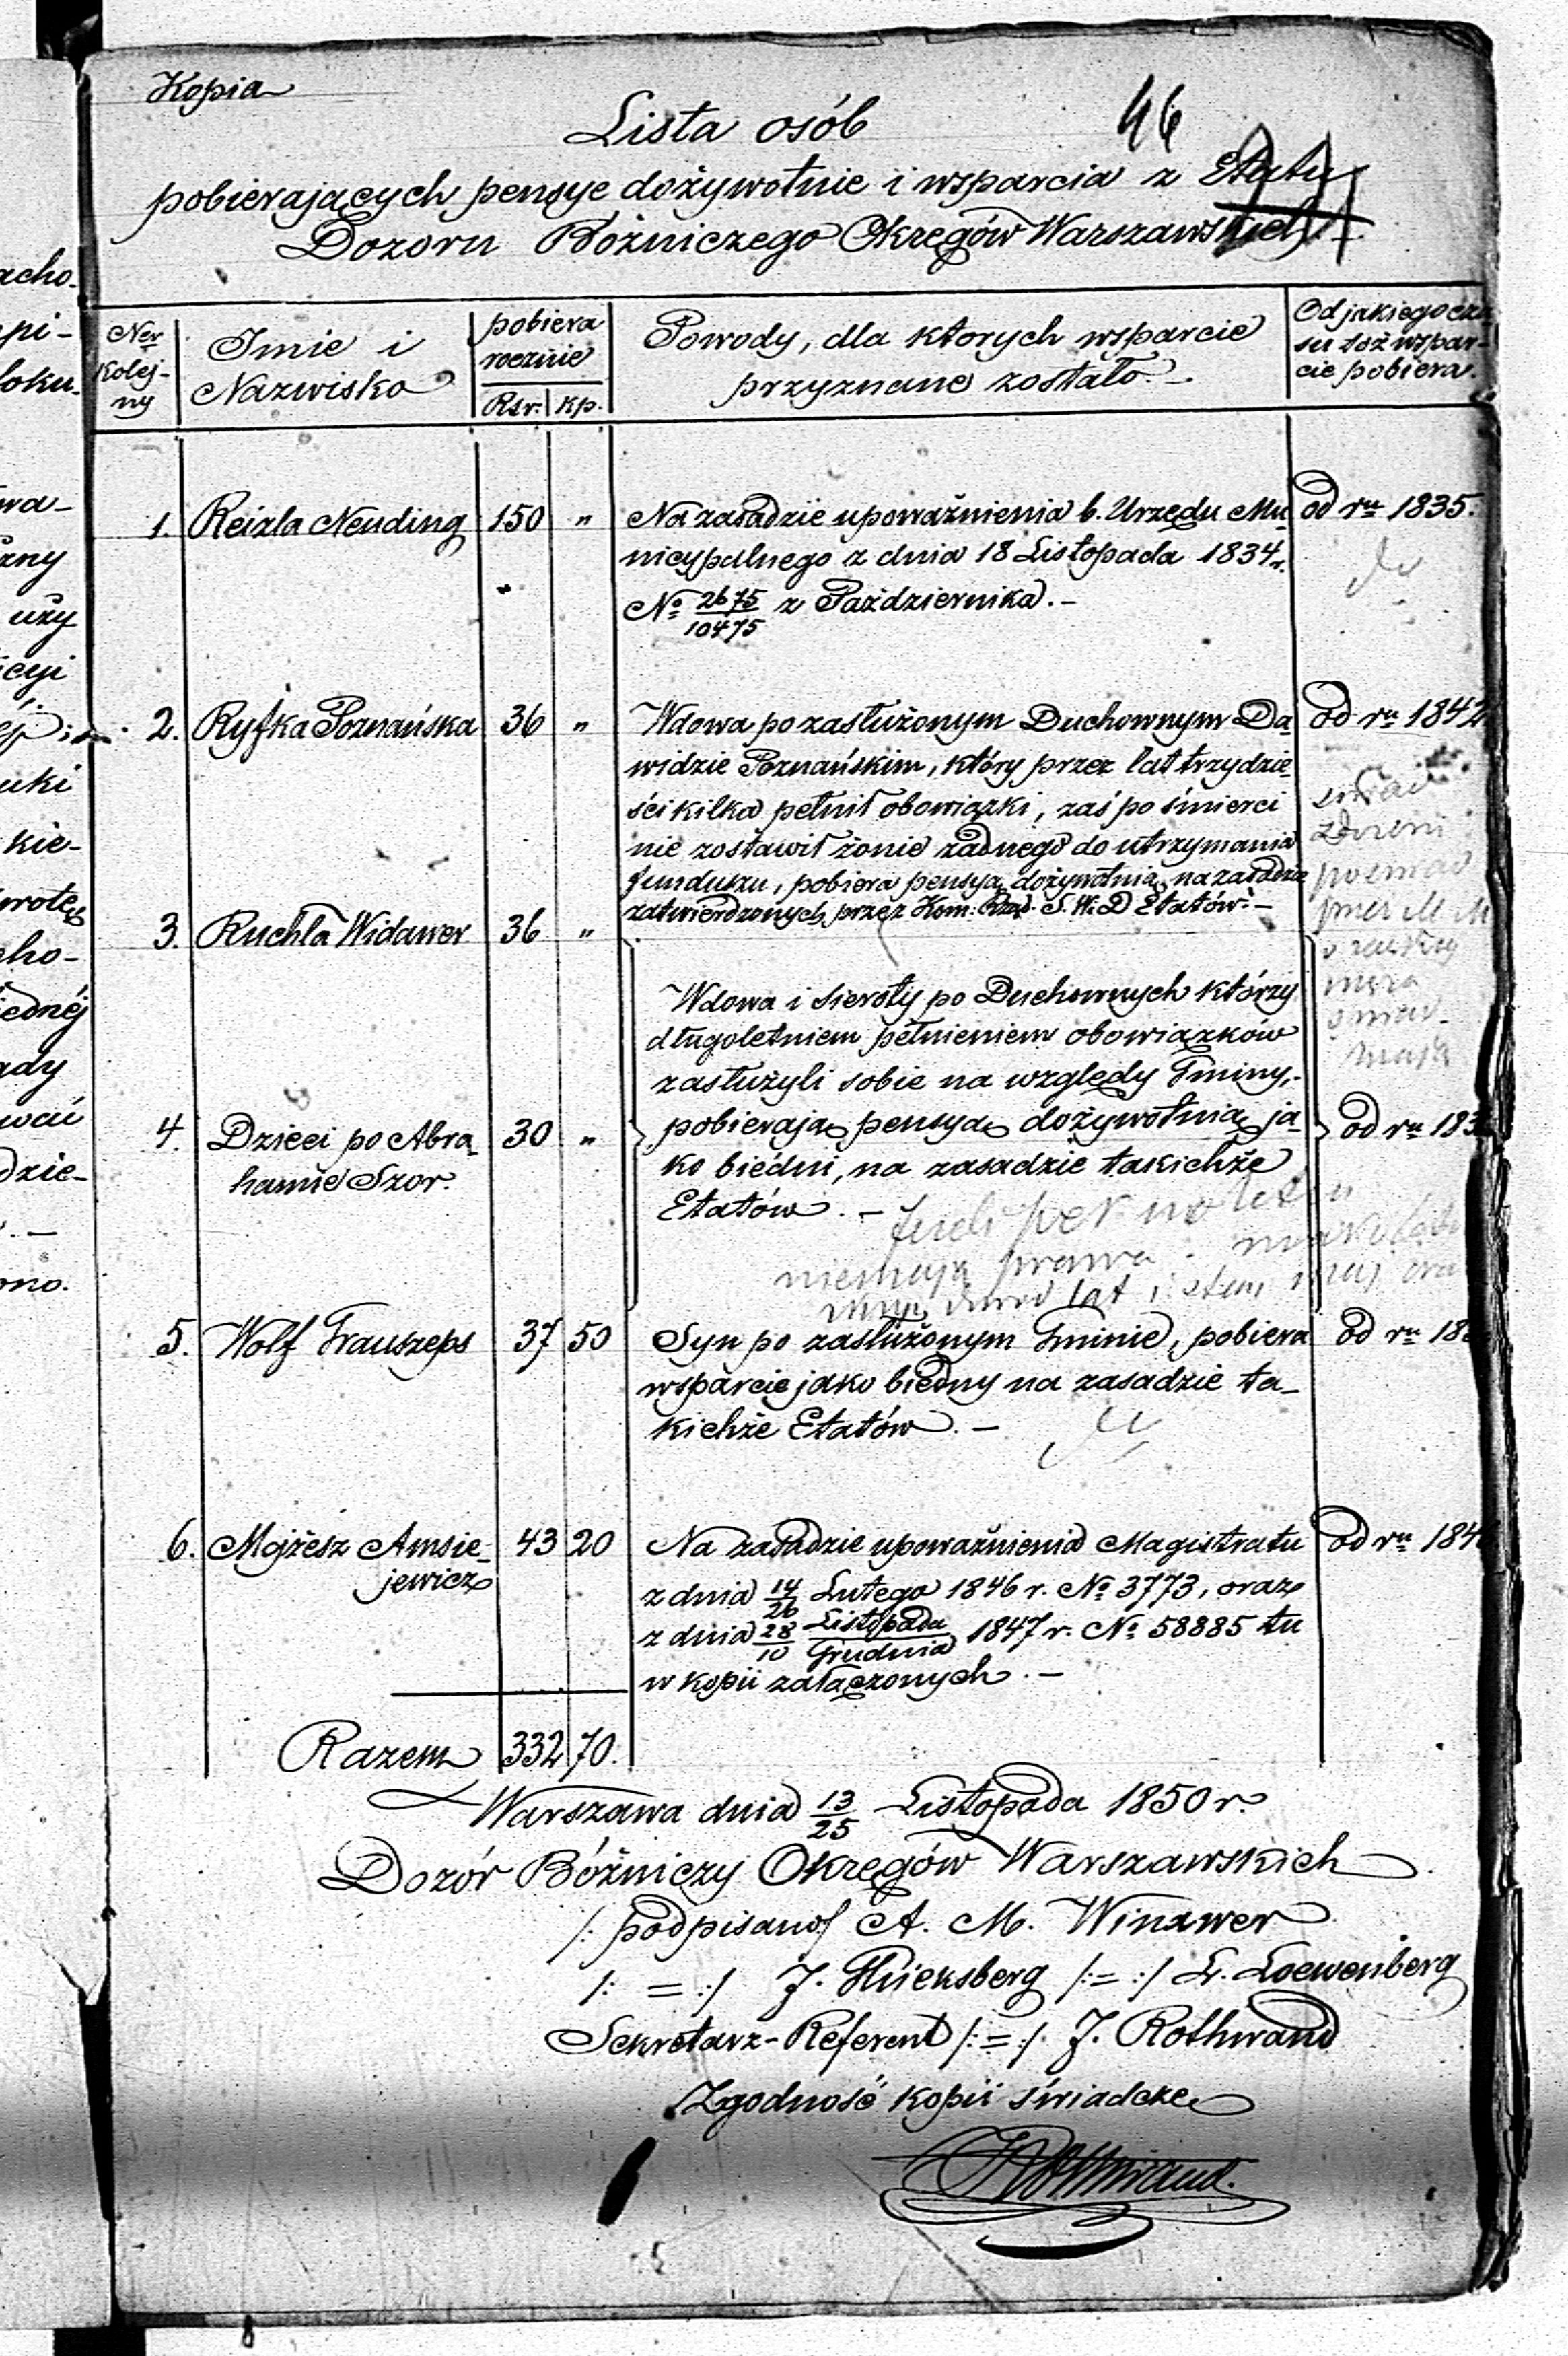 Kopia
46
Lista osób
pobierających pensye dożywotnie i wsparcia z Etatu
Dozoru Bóżniczego Okręgów Warszawskich
Ner Kolej-
ny
Imie i
Nazwisko
pobiera
rocznie
Rsr. kp.
Powody, dla ktorych wsparcie
przyznane zostało. -
Od jakiego cza
su toż wspar-
cie pobiera.
1. Reizla Neuding 150 "
Na zasadzie upoważnienia b. Urzędu Mu-
nicypalnego z dnia 18 Listopada 1834 r.
No 2675/10475 z Października. -
od ru 1835.
2. Ryfka Poznańska 36 "
Wdowa po zasłużonym Duchownym Da-
widzie Poznańskim, który przez lat trzydzie-
ści kilka pełnił obowiązki, zaś po śmierci
nie zostawił żonie żadnego do utrzymania
funduszu, pobiera pensyą dożywotnią na zasadzie
zatwierdzonych przez Kom: Rząd. S. W. D Etatów. -
od ru 1842
3. Ruchla Widawer 36 "
Wdowa i Sieroty po Duchownych którzy
długoletniem pełnieniem obowiązkow
zasłużyli sobie na względy Gminy,
pobierają pensyą dożywotnią ja-
ko biedni, na zasadzie takichże
Etatów. -
4. Dzieci po Abra-
hamie Szor. 30 "
od ru 183
niemają prawa
lat
5. Wolf Trauszeps 37 50
Syn po zasłużonym Gminie, pobiera
wsparcie jako biedny na zasadzie ta-
kichże Etatów. -
od ru 18
6. Mojżesz Amsie-
jewicz 43 20
Na zasadzie upoważnienia Magistratu
z dnia 14/26 Lutego 1846 r. No 3773, oraz
z dnia 28/10 Listopada/Grudnia 1847 r. No 58885 tu
w kopii załączonych. -
od ru 184
Razem 332 70.
Warszawa dnia 13/25 Listopada 1850 r.
Dozór Bóżniczy Okręgów Warszawskich
/: podpisano/ A. M. Winawer
/: = :/ J. Glücksberg /: = :/ L. Loewenberg
Sekretarz-Referent /: = :/. J. Rothwand
Zgodność kopii świadczę
JRothwand.